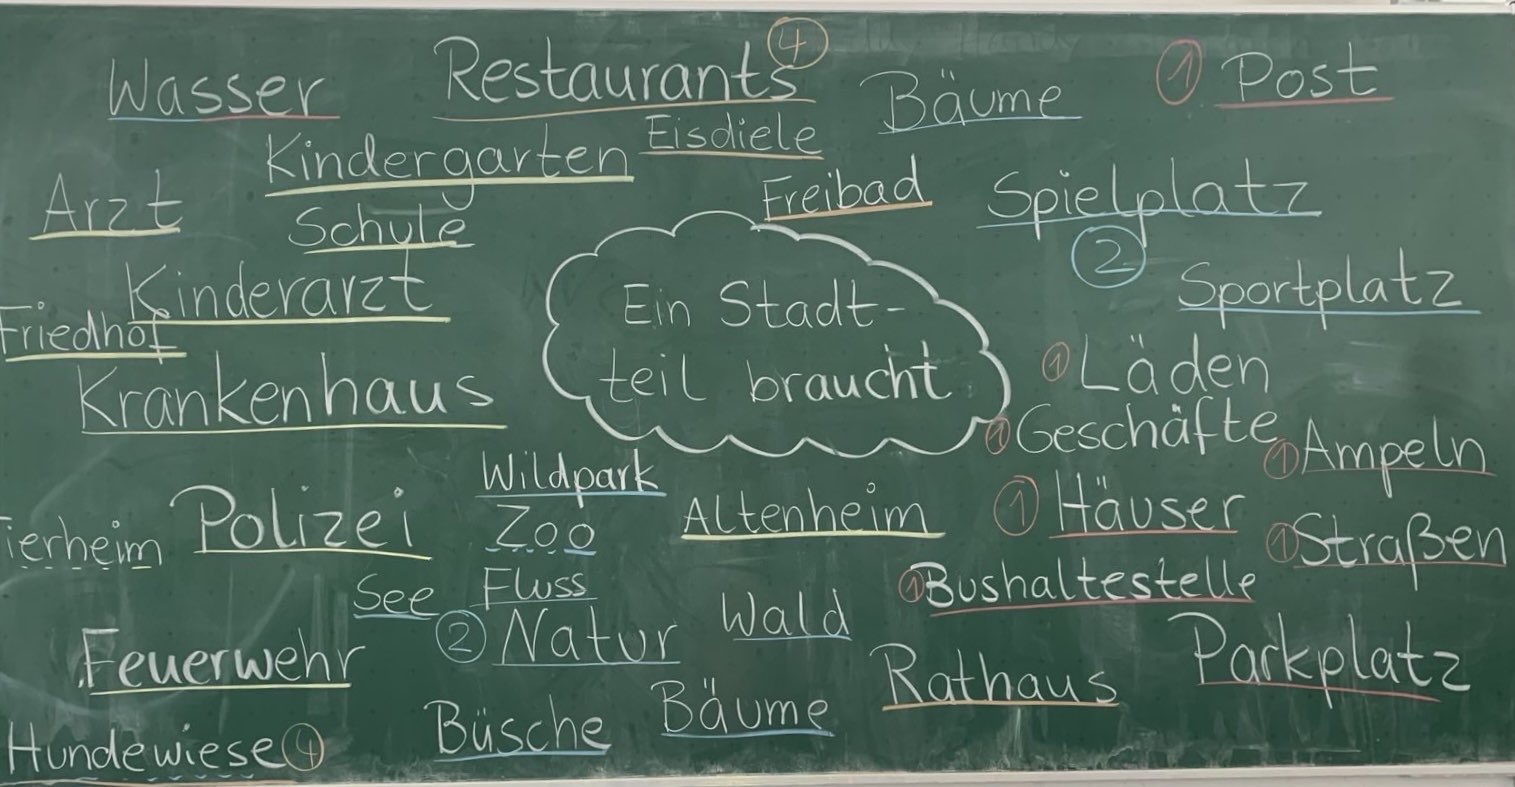 Wasser
Restaurants 4
Bäume
1 Post
Kindergarten
Eisdiele
Arzt
Schule
Freibad
Spielplatz
2
Kinderarzt
Sportplatz
Friedhof
Ein Stadt-
teil braucht
1 Läden
Krankenhaus
1 Geschäfte
1 Ampeln
Wildpark
Polizei
Zoo
Altenheim
1 Häuser
Tierheim
1 Straßen
See
Fluss
1 Bushaltestelle
2 Natur
Wald
Feuerwehr
Rathaus
Parkplatz
Büsche
Bäume
Hundewiese 4